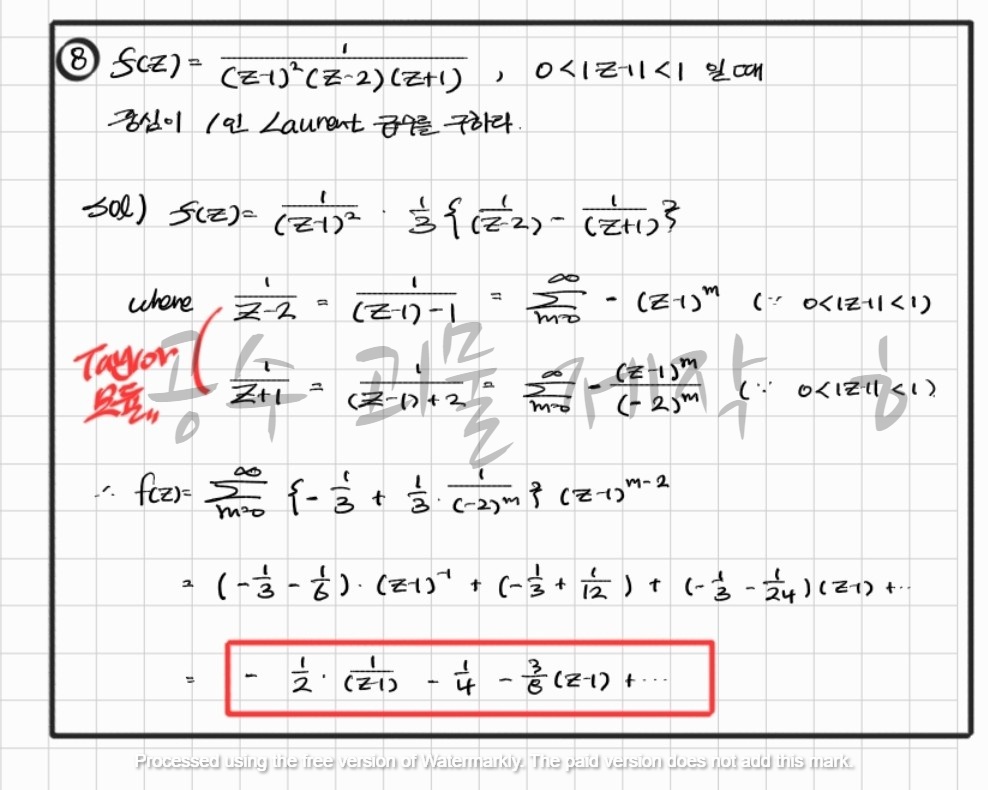 ⑧ f(z) = 1/((z-1)²(z-2)(z+1)) , 0<|z-1|<1 일 때
중심이 1인 Laurent 급수를 구하라.
sol) f(z) = 1/(z-1)² · 1/3 {1/(z-2) - 1/(z+1)}
where 1/(z-2) = 1/((z-1)-1) = ∑_{m=0}^{∞} - (z-1)^m (∵ 0<|z-1|<1)
Taylor
모듈..
1/(z+1) = 1/((z-1)+2) = ∑_{m=0}^{∞} - (z-1)^m/(-2)^m (∵ 0<|z-1|<1)
공수 괴물 제작 중
∴ f(z) = ∑_{m=0}^{∞} {-1/3 + 1/3 · 1/(-2)^m} (z-1)^{m-2}
= (-1/3 - 1/6) · (z-1)^{-1} + (-1/3 + 1/12) + (-1/3 - 1/24)(z-1) + ⋯
= - 1/2 · 1/(z-1) - 1/4 - 3/8 (z-1) + ⋯
Processed using the free version of Watermarkly. The paid version does not add this mark.